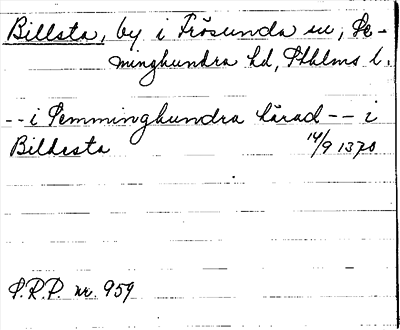 Billsta, by i Frösunda sn, Se-
minghundra hd, Sthlms l.
-- i Semminghundra härad -- i
Bildesta 14/9 1370
S.R.P. nr. 959